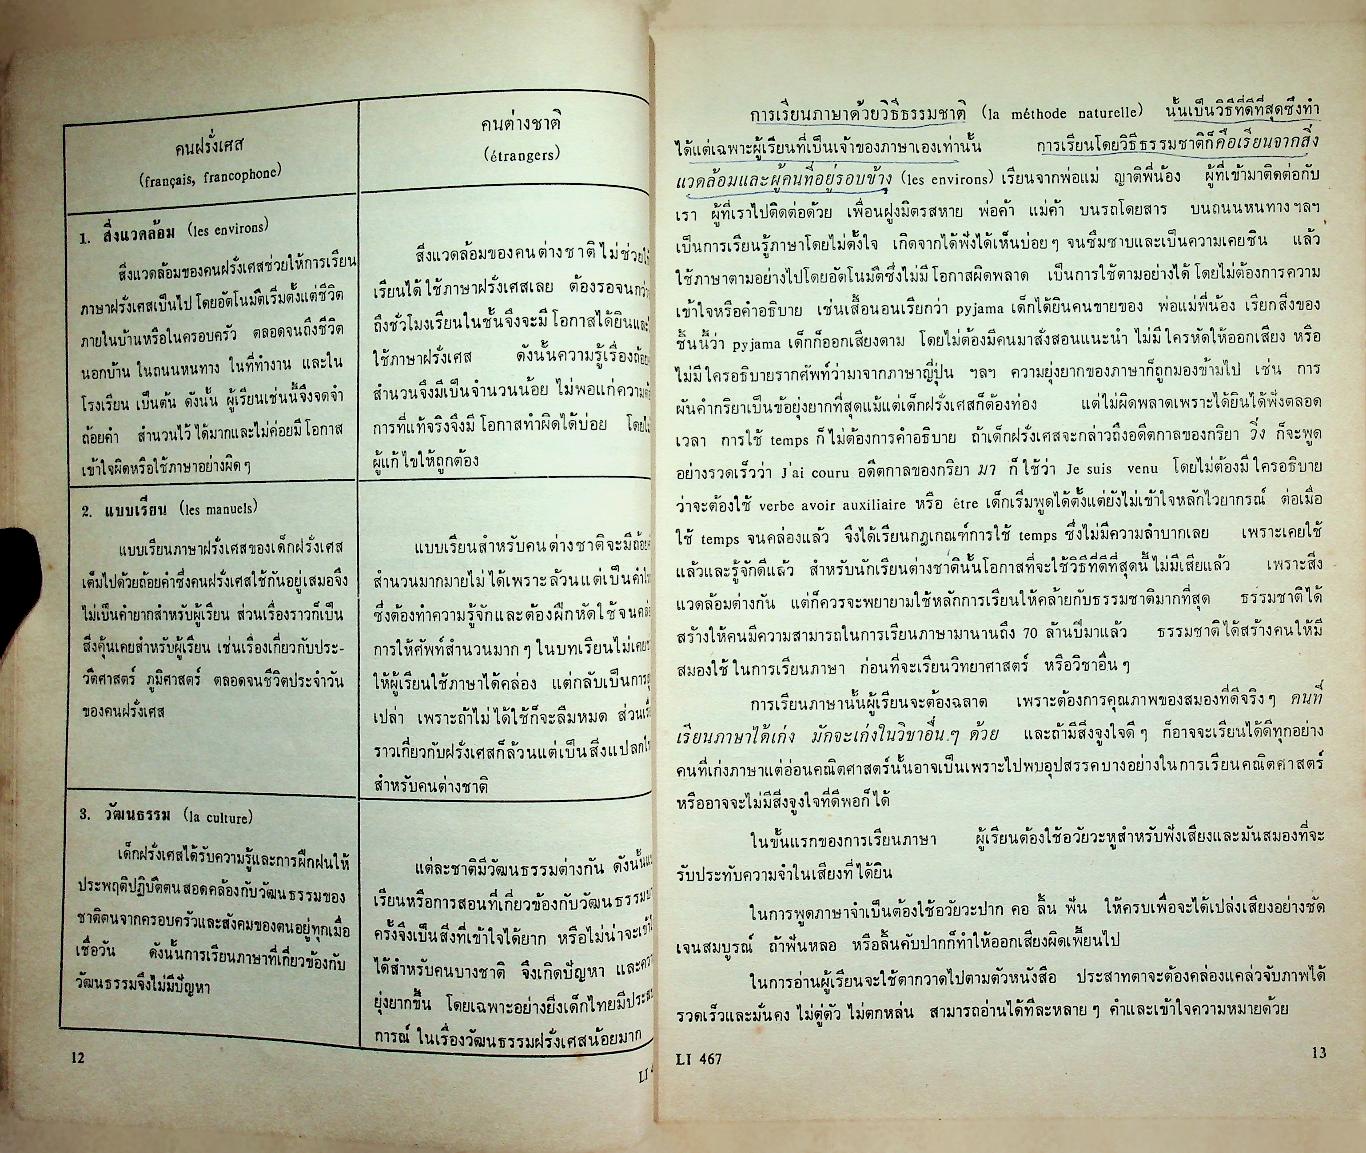 คนฝรั่งเศส
(français, francophone)
คนต่างชาติ
(étrangers)
1. สิ่งแวดล้อม (les environs)
สิ่งแวดล้อมของคนฝรั่งเศสช่วยให้การเรียน
ภาษาฝรั่งเศสเป็นไปโดยอัตโนมัติเริ่มตั้งแต่ชีวิต
ภายในบ้านหรือในครอบครัว ตลอดจนถึงชีวิต
นอกบ้าน ในถนนหนทาง ในที่ทำงาน และใน
โรงเรียน เป็นต้น ดังนั้น ผู้เรียนเช่นนี้จึงจดจำ
ถ้อยคำ สำนวนไว้ได้มากและไม่ค่อยมีโอกาส
เข้าใจผิดหรือใช้ภาษาอย่างผิดๆ
สิ่งแวดล้อมของคนต่างชาติไม่ช่วย
เรียนได้ใช้ภาษาฝรั่งเศสเลย ต้องรอจนกว่า
ถึงชั่วโมงเรียนในชั้นจึงจะมีโอกาสได้ยินและ
ใช้ภาษาฝรั่งเศส ดังนั้นความรู้เรื่อง
สำนวนจึงมีเป็นจำนวนน้อย ไม่พอแก่ความ
การที่แท้จริงจึงมีโอกาสทำผิดได้บ่อย
ผู้แก้ไขให้ถูกต้อง
2. แบบเรียน (les manuels)
แบบเรียนภาษาฝรั่งเศสของเด็กฝรั่งเศส
เต็มไปด้วยถ้อยคำซึ่งคนฝรั่งเศสใช้กันอยู่เสมอจึง
ไม่เป็นคำยากสำหรับผู้เรียน ส่วนเรื่องราวก็เป็น
สิ่งคุ้นเคยสำหรับผู้เรียน เช่นเรื่องเกี่ยวกับประ-
วัติศาสตร์ ภูมิศาสตร์ ตลอดจนชีวิตประจำวัน
ของคนฝรั่งเศส
แบบเรียนสำหรับคนต่างชาติจะมี
สำนวนมากมายไม่ได้เพราะล้วนแต่เป็นคำ
ซึ่งต้องทำความรู้จักและต้องฝึกหัดใช้จน
การให้ศัพท์สำนวนมากๆ ในบทเรียนไม่เคย
ให้ผู้เรียนใช้ภาษาได้คล่อง แต่กลับเป็นการ
เปล่า เพราะถ้าไม่ได้ใช้ก็จะลืมหมด ส่วน
ราวเกี่ยวกับฝรั่งเศสก็ล้วนแต่เป็นสิ่งแปลก
สำหรับคนต่างชาติ
3. วัฒนธรรม (la culture)
เด็กฝรั่งเศสได้รับความรู้และการฝึกฝนให้
ประพฤติปฏิบัติตนสอดคล้องกับวัฒนธรรมของ
ชาติตนจากครอบครัวและสังคมของตนอยู่ทุกเมื่อ
เชื่อวัน ดังนั้นการเรียนภาษาที่เกี่ยวข้องกับ
วัฒนธรรมจึงไม่มีปัญหา
แต่ละชาติมีวัฒนธรรมต่างกัน ดังนั้น
เรียนหรือการสอนที่เกี่ยวข้องกับวัฒนธรรม
ครั้งจึงเป็นสิ่งที่เข้าใจได้ยาก หรือไม่น่าจะ
ได้สำหรับคนบางชาติ จึงเกิดปัญหา และ
ยุ่งยากขึ้น โดยเฉพาะอย่างยิ่งเด็กไทยมี
การณ์ ในเรื่องวัฒนธรรมฝรั่งเศสน้อยมาก
12
LI
การเรียนภาษาด้วยวิธีธรรมชาติ (la méthode naturelle) นั้นเป็นวิธีที่ดีที่สุดซึ่งทำ
ได้แต่เฉพาะผู้เรียนที่เป็นเจ้าของภาษาเองเท่านั้น การเรียนโดยวิธีธรรมชาติก็คือเรียนจากสิ่ง
แวดล้อมและผู้คนที่อยู่รอบข้าง (les environs) เรียนจากพ่อแม่ ญาติพี่น้อง ผู้ที่เข้ามาติดต่อกับ
เรา ผู้ที่เราไปติดต่อด้วย เพื่อนฝูงมิตรสหาย พ่อค้า แม่ค้า บนรถโดยสาร บนถนนหนทางฯลฯ
เป็นการเรียนรู้ภาษาโดยไม่ตั้งใจ เกิดจากได้ฟังได้เห็นบ่อยๆ จนซึมซาบและเป็นความเคยชิน แล้ว
ใช้ภาษาตามอย่างไปโดยอัตโนมัติซึ่งไม่มีโอกาสผิดพลาด เป็นการใช้ตามอย่างได้โดยไม่ต้องการความ
เข้าใจหรือคำอธิบาย เช่นเสื้อนอนเรียกว่า pyjama เด็กได้ยินคนขายของ พ่อแม่พี่น้อง เรียกสิ่งของ
ชิ้นนี้ว่า pyjama เด็กก็ออกเสียงตาม โดยไม่ต้องมีคนมาสั่งสอนแนะนำ ไม่มีใครหัดให้ออกเสียง หรือ
ไม่มีใครอธิบายรากศัพท์ว่ามาจากภาษาญี่ปุ่น ฯลฯ ความยุ่งยากของภาษาก็ถูกมองข้ามไป เช่น การ
ผันคำกริยาเป็นข้อยุ่งยากที่สุดแม้แต่เด็กฝรั่งเศสก็ต้องท่อง แต่ไม่ผิดพลาดเพราะได้ยินได้ฟังตลอด
เวลา การใช้ temps ก็ไม่ต้องการคำอธิบาย ถ้าเด็กฝรั่งเศสจะกล่าวถึงอดีตกาลของกริยา วิ่ง ก็จะพูด
อย่างรวดเร็วว่า J'ai couru อดีตกาลของกริยา มา ก็ใช้ว่า Je suis venu โดยไม่ต้องมีใครอธิบาย
ว่าจะต้องใช้ verbe avoir auxiliaire หรือ être เด็กเริ่มพูดได้ตั้งแต่ยังไม่เข้าใจหลักไวยากรณ์ ต่อเมื่อ
ใช้ temps จนคล่องแล้ว จึงได้เรียนกฎเกณฑ์การใช้ temps ซึ่งไม่มีความลำบากเลย เพราะเคยใช้
แล้วและรู้จักดีแล้ว สำหรับนักเรียนต่างชาตินั้นโอกาสที่จะใช้วิธีที่ดีที่สุดนี้ไม่มีเสียแล้ว เพราะสิ่ง
แวดล้อมต่างกัน แต่ก็ควรจะพยายามใช้หลักการเรียนให้คล้ายกับธรรมชาติมากที่สุด ธรรมชาติได้
สร้างให้คนมีความสามารถในการเรียนภาษามานานถึง 70 ล้านปีมาแล้ว ธรรมชาติได้สร้างคนให้มี
สมองใช้ในการเรียนภาษา ก่อนที่จะเรียนวิทยาศาสตร์ หรือวิชาอื่นๆ
การเรียนภาษานั้นผู้เรียนจะต้องฉลาด เพราะต้องการคุณภาพของสมองที่ดีจริงๆ คนที่
เรียนภาษาได้เก่ง มักจะเก่งในวิชาอื่นๆ ด้วย และถ้ามีสิ่งจูงใจดีๆ ก็อาจจะเรียนได้ดีทุกอย่าง
คนที่เก่งภาษาแต่อ่อนคณิตศาสตร์นั้นอาจเป็นเพราะไปพบอุปสรรคบางอย่างในการเรียนคณิตศาสตร์
หรืออาจจะไม่มีสิ่งจูงใจที่ดีพอก็ได้
ในขั้นแรกของการเรียนภาษา ผู้เรียนต้องใช้อวัยวะหูสำหรับฟังเสียงและมันสมองที่จะ
รับประทับความจำในเสียงที่ได้ยิน
ในการพูดภาษาจำเป็นต้องใช้อวัยวะปาก คอ ลิ้น ฟัน ให้ครบเพื่อจะได้เปล่งเสียงอย่างชัด
เจนสมบูรณ์ ถ้าฟันหลอ หรือลิ้นคับปากก็ทำให้ออกเสียงผิดเพี้ยนไป
ในการอ่านผู้เรียนจะใช้ตากวาดไปตามตัวหนังสือ ประสาทตาจะต้องคล่องแคล่วจับภาพได้
รวดเร็วและมั่นคง ไม่ตู่ตัว ไม่ตกหล่น สามารถอ่านได้ทีละหลายๆ คำและเข้าใจความหมายด้วย
LI 467
13